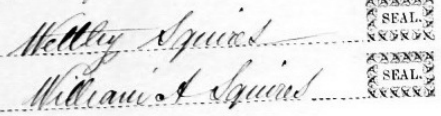 Wettley Squires SEAL.
William A Squires SEAL.